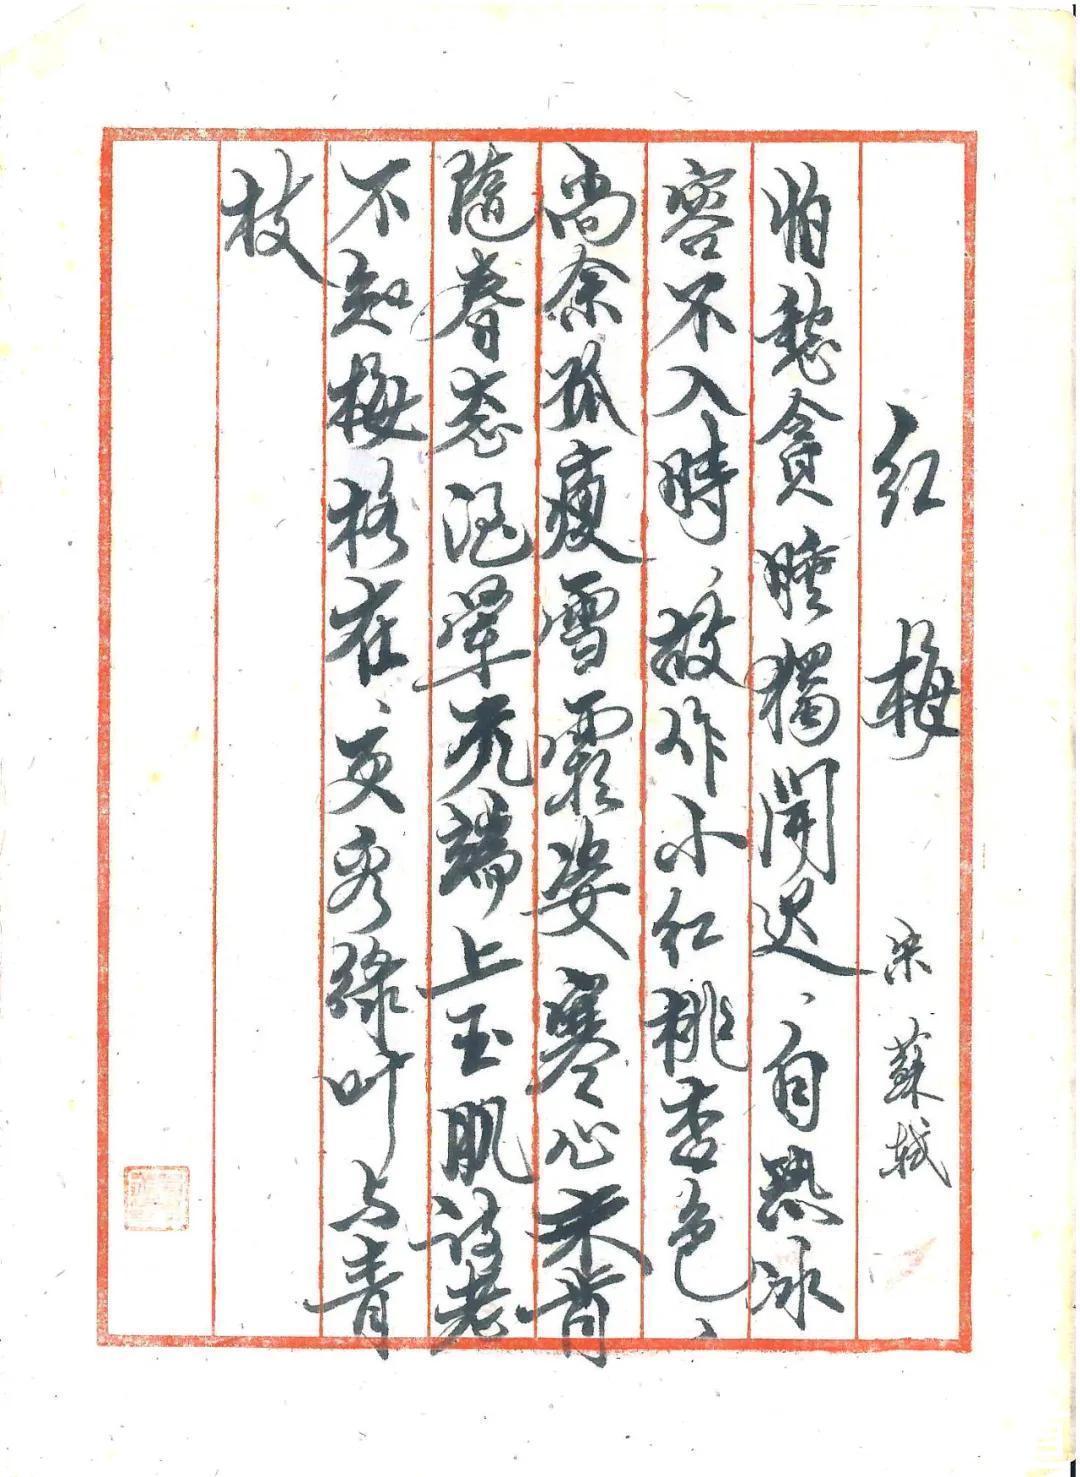 红梅 宋 蘇軾
怕愁貪睡獨開迟、自恐冰
容不入時、故作小红桃杏色、
尚余孤瘦雪霜姿寒心未肯
隨春态酒暈无端上玉肌诗老
不知梅格在、更看綠叶与青
枝